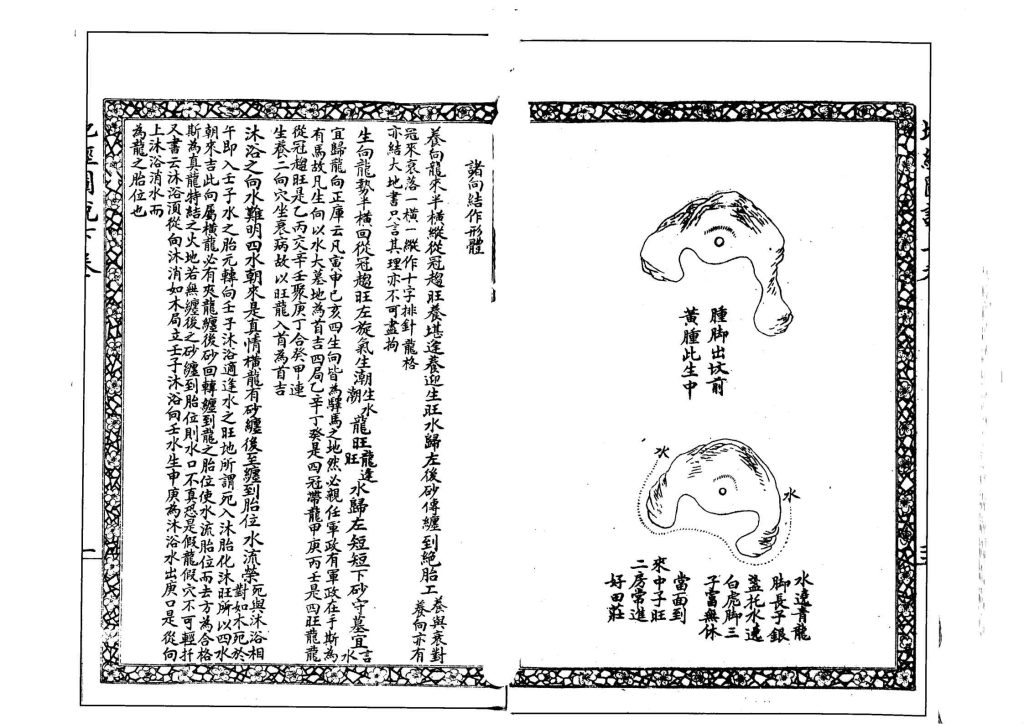 腫脚出坟前
黃腫此生中
水
水
水遶青龍
脚長子銀
盞托水遶
白虎脚三
子富無休
當面到
來中子旺
二房常進
好田莊
諸向結作形體
養向龍來半橫縱從冠趨旺養堪逢養迎生旺水歸左後砂傳纏到絕胎工養與衰對養向亦有
冠來衰落一橫一縱作十字排針龍格
亦結大地書只言其理亦不可盡拘
生向龍勢半橫回從冠趨旺左旋氣生潮生水潮龍旺龍逢旺水歸左短短下砂守墓宜言水
宜歸龍向正庫云凡寅申巳亥四生向皆為驛馬之地然必親任軍政有軍政在手斯為
有馬故凡生向以水大墓地為首吉四局乙辛丁癸是四冠帶龍甲庚丙壬是四旺龍龍
從冠趨旺是乙丙交辛壬聚庚丁合癸甲連
生養二向穴坐衰病故以旺龍入首為首吉
沐浴之向水難明四水朝來是真情橫龍有砂纏後至纏到胎位水流榮死與沐浴相對如木死於
午即入壬子水之胎元轉向壬子沐浴適逢水之旺地所謂死入沐胎化沐旺所以四水
朝來吉此向屬橫龍必有夾龍纏後砂回轉纏到龍之胎位使水流胎位而去方為合格
斯為真龍特結之大地若無纏後之砂纏到胎位則水口不真恐是假龍假穴不可輕扦
又書云沐浴須從向沐消如木局立壬子沐浴向壬水生申庚為沐浴水出庚口是從向
上沐浴消水而
為龍之胎位也